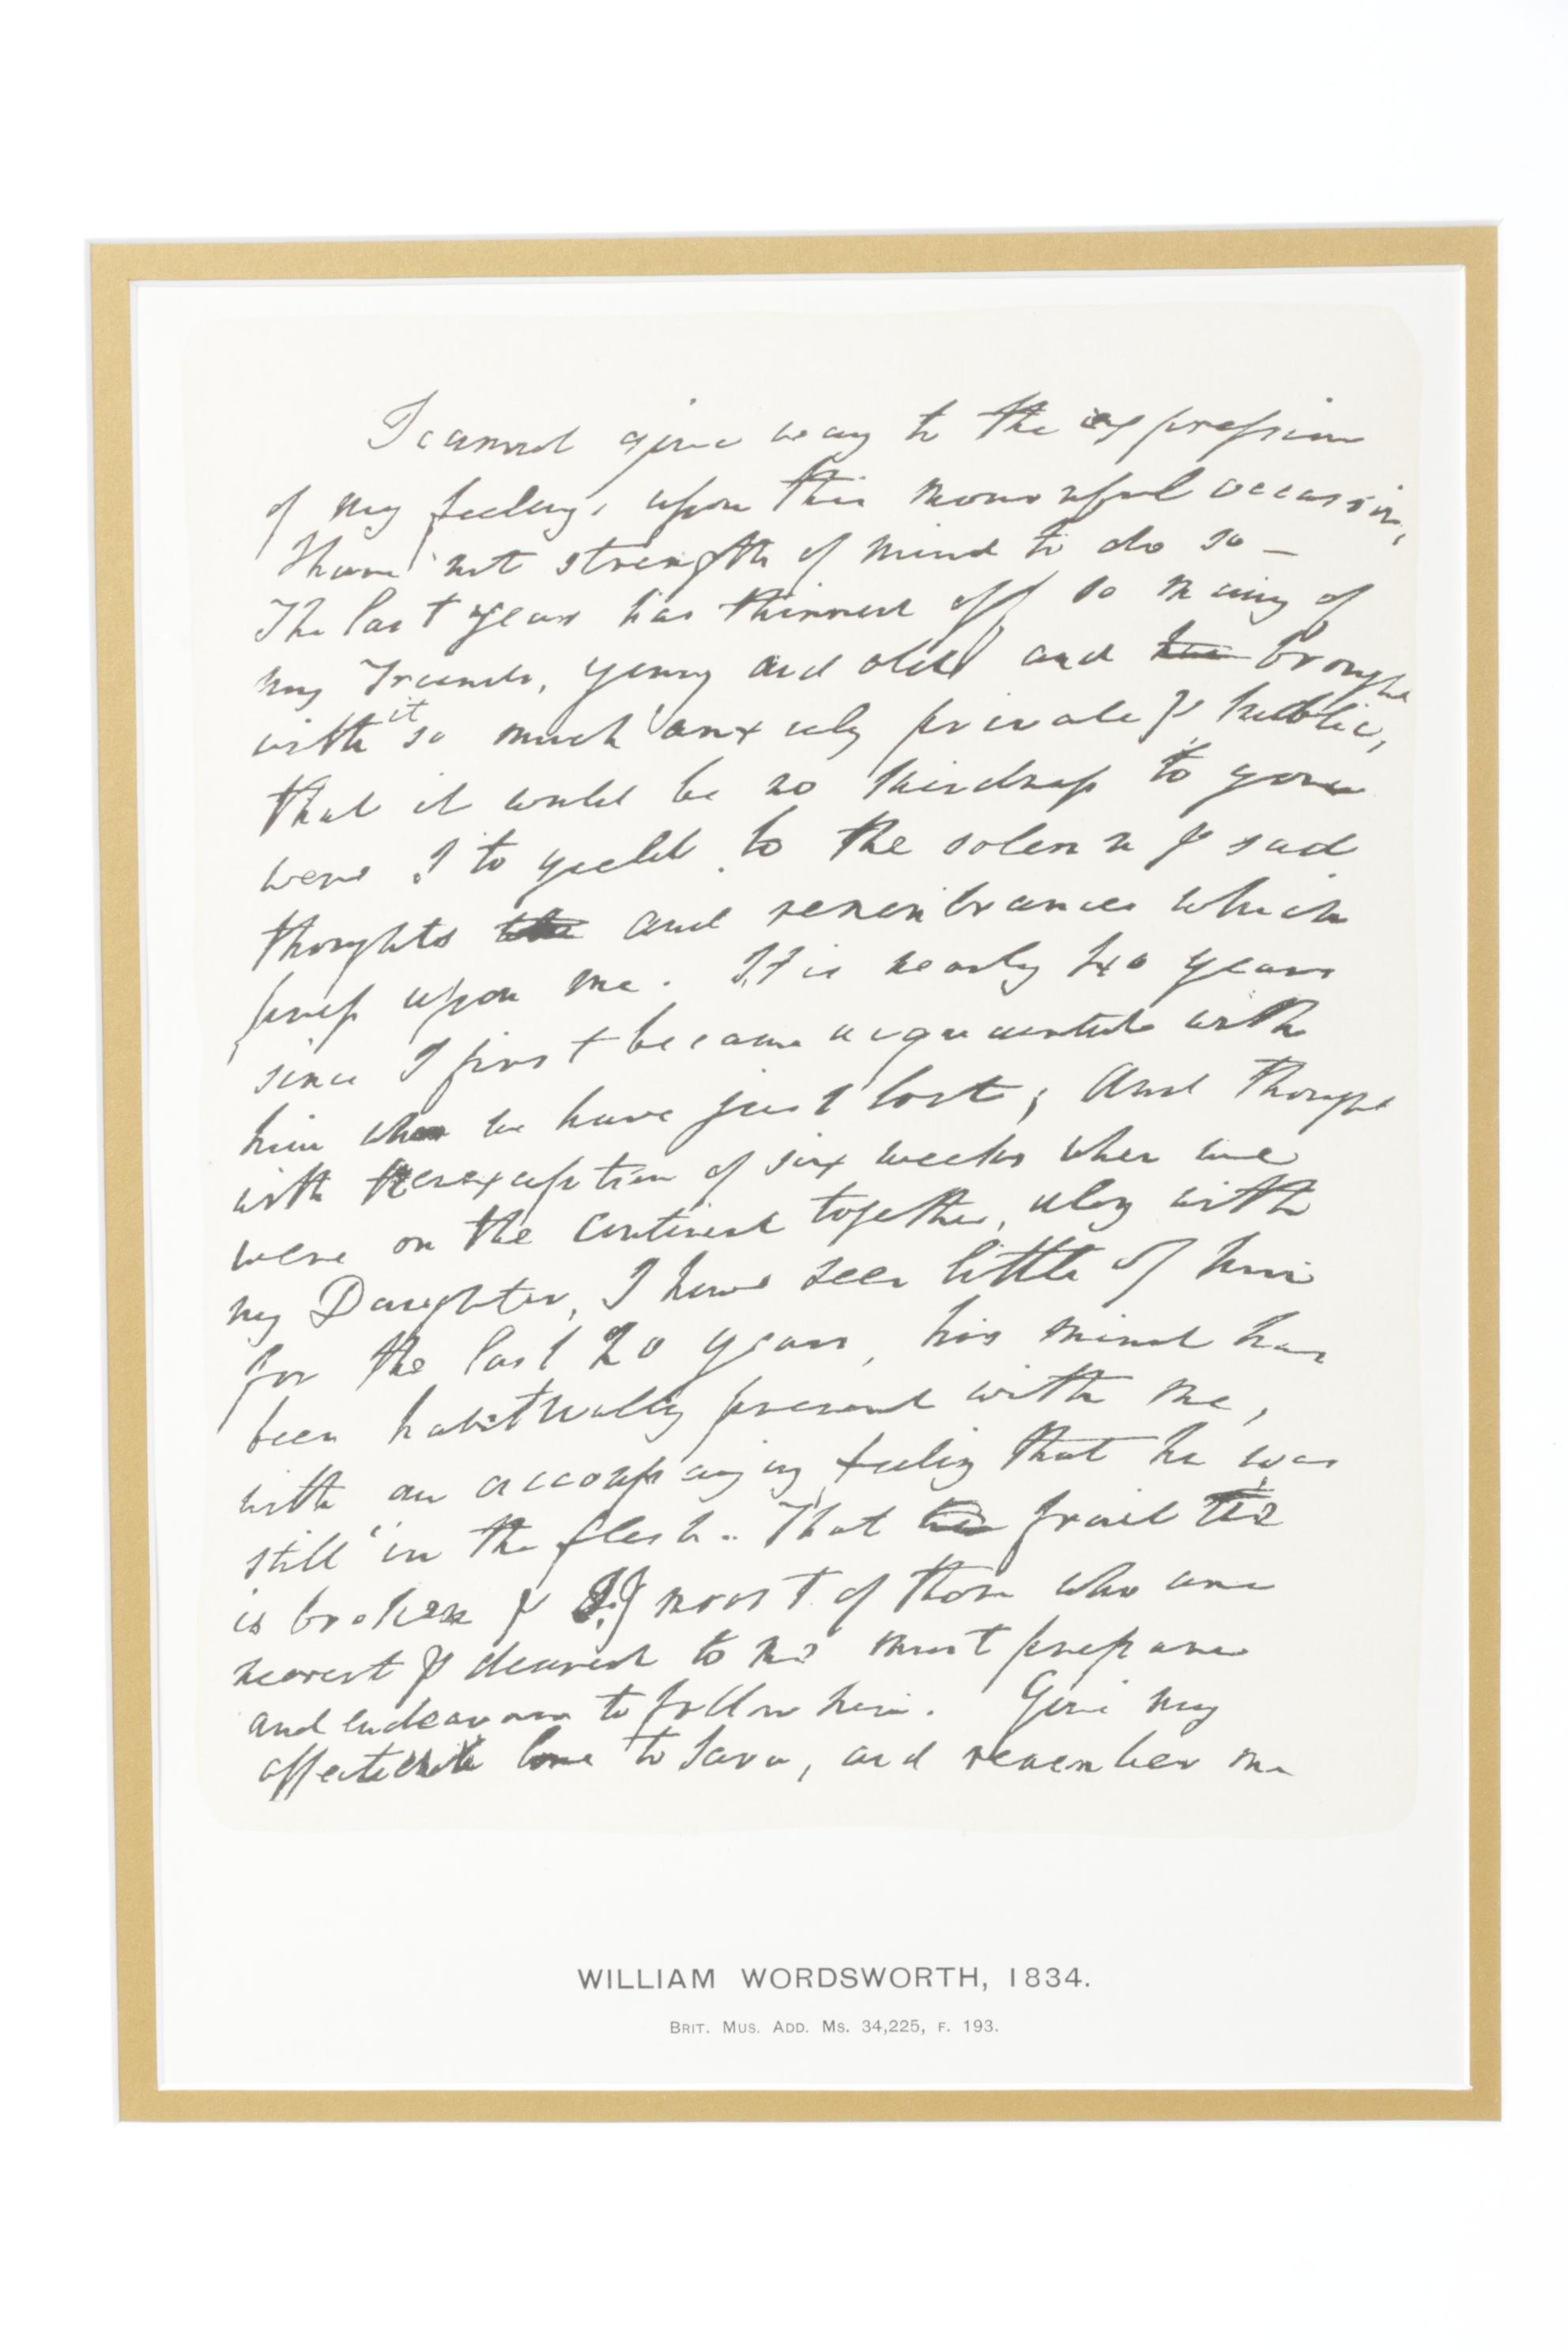 I cannot give way to the expression
of my feelings upon this mournful occasion,
I have not strength of mind to do so —
The last year has thinned off so many of
my Friends, young and old and brought
with it so much anxiety private & public,
that it would be no kindness to you
were I to yield to the solemn & sad
thoughts and remembrances which
press upon me. It is nearly 40 years
since I first became acquainted with
him whom we have just lost; and though
with the exception of six weeks when we
were on the continent together, along with
my Daughter, I have seen little of him
for the last 20 years, his mind has
been habitually present with me,
with an accompanying feeling that he was
still in the flesh. That frail tie
is broken & I, & most of those who are
nearest & dearest to me must prepare
and endeavour to follow him. Give my
affectionate love to Sara, and remember me
WILLIAM WORDSWORTH, 1834.
BRIT. MUS. ADD. MS. 34,225, F. 193.